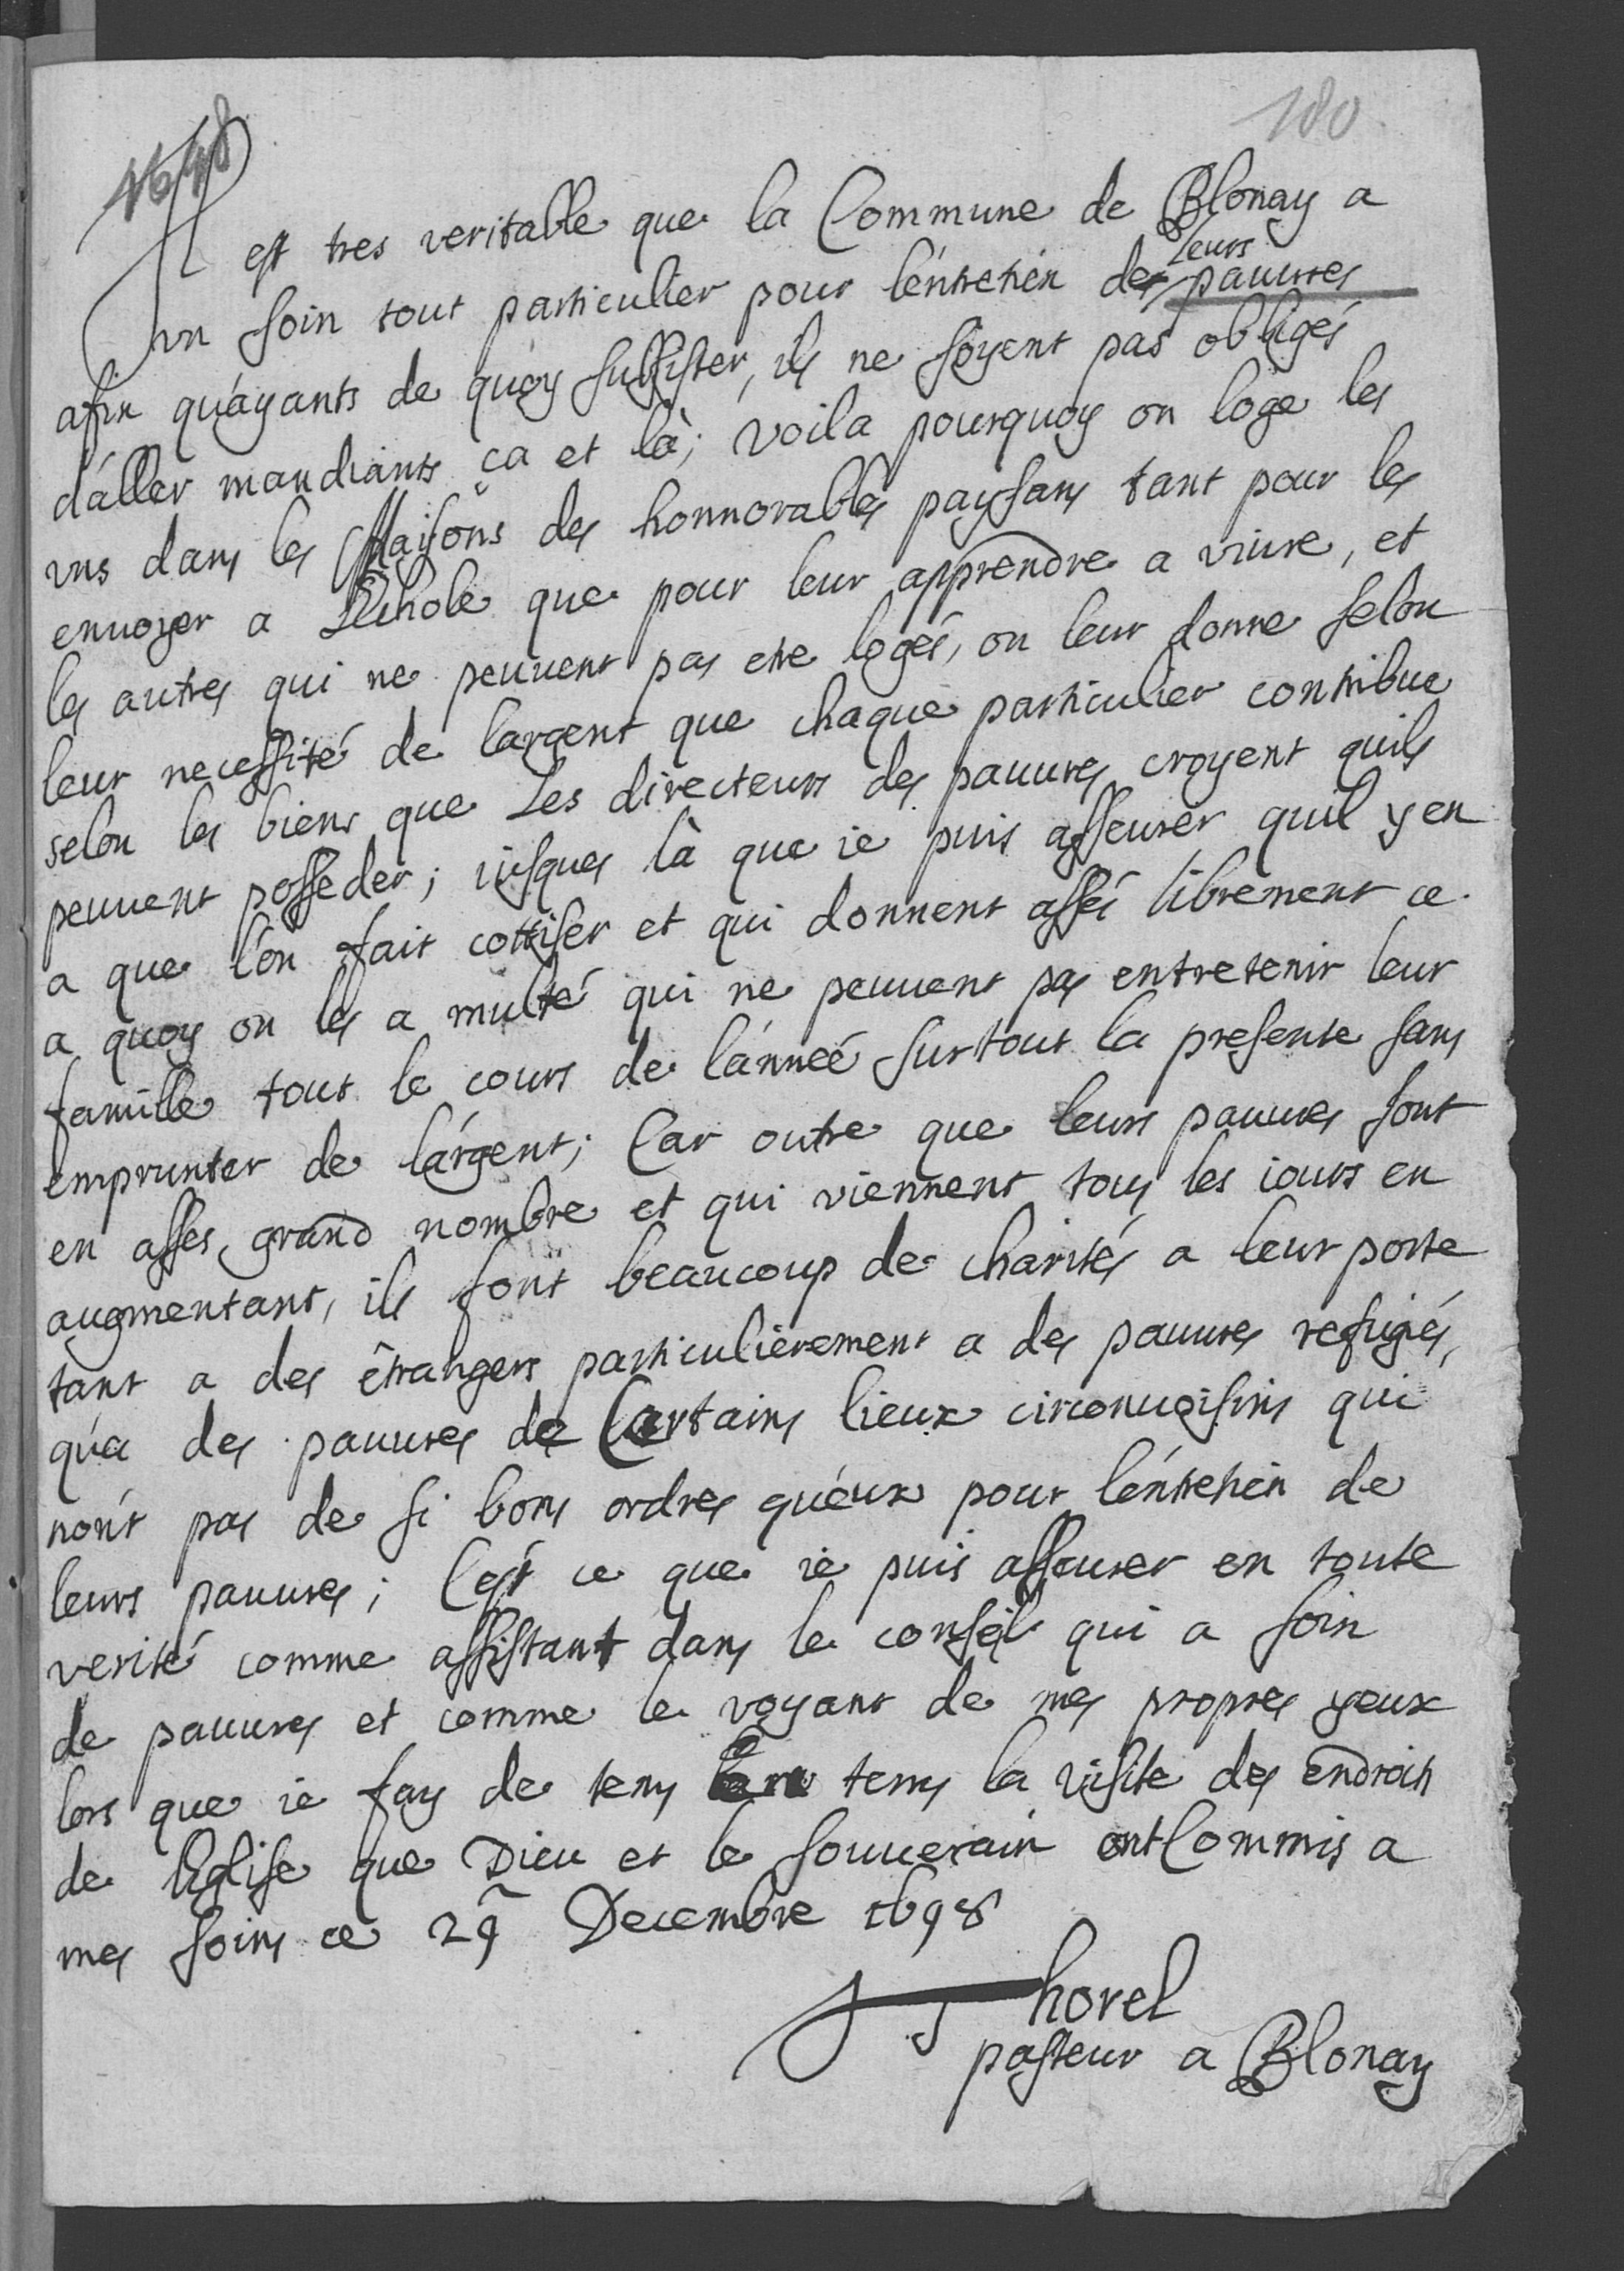 180
1698
Il est tres veritable que la Commune de Blonay a
un soin tout particulier pour l'éntretién des Leurs pauures
afin qu'áyants de quoy subsister, ils ne soyent pas obligés
d'áller mandiants ça et là; voila pourquoy on loge les
uns dans les Maisons des honnorables paysans tant pour les
enuoyer a L'échole que pour leur apprendre a viure, et
les autres qui ne peuuent pas etre logés, on leur donne selon
leur necessité de largent que chaque particulier contribue
selon les biens que Les directeurs des pauures croyent quils
peuuent posseder; iusques là que ie puis asseurer quil y en
a que l'ón fait cottiser et qui donnent assés librement ce
a quoy on les a multé qui ne peuuent pas entretenir leur
famille tout le cours de l'ánneé surtout la presente sans
emprunter de l'árgent; Car outre que leurs pauures sont
en asses grand nombre et qui viennent tous les iours en
augmentant, ils font beaucoup de charités a leur porte
tant a des êtrangers particulierement a des pauures refugiés,
qu'a des pauures de Certains lieux circonuoisins qui
nont pas de si bons ordres qu'éux pour l'éntretién de
leurs pauures; C'est ce que ie puis asseurer en toute
verité comme assistant dans le conseil qui a soin
de pauures et comme le voyant de mes propres yeux
lors que ie fay de tems en tems la visite des endroits
de l'Eglise que Dieu et le souuerain ont Commis a
mes soins ce 29 Decembre 1698
J Thorel
pasteur a Blonay